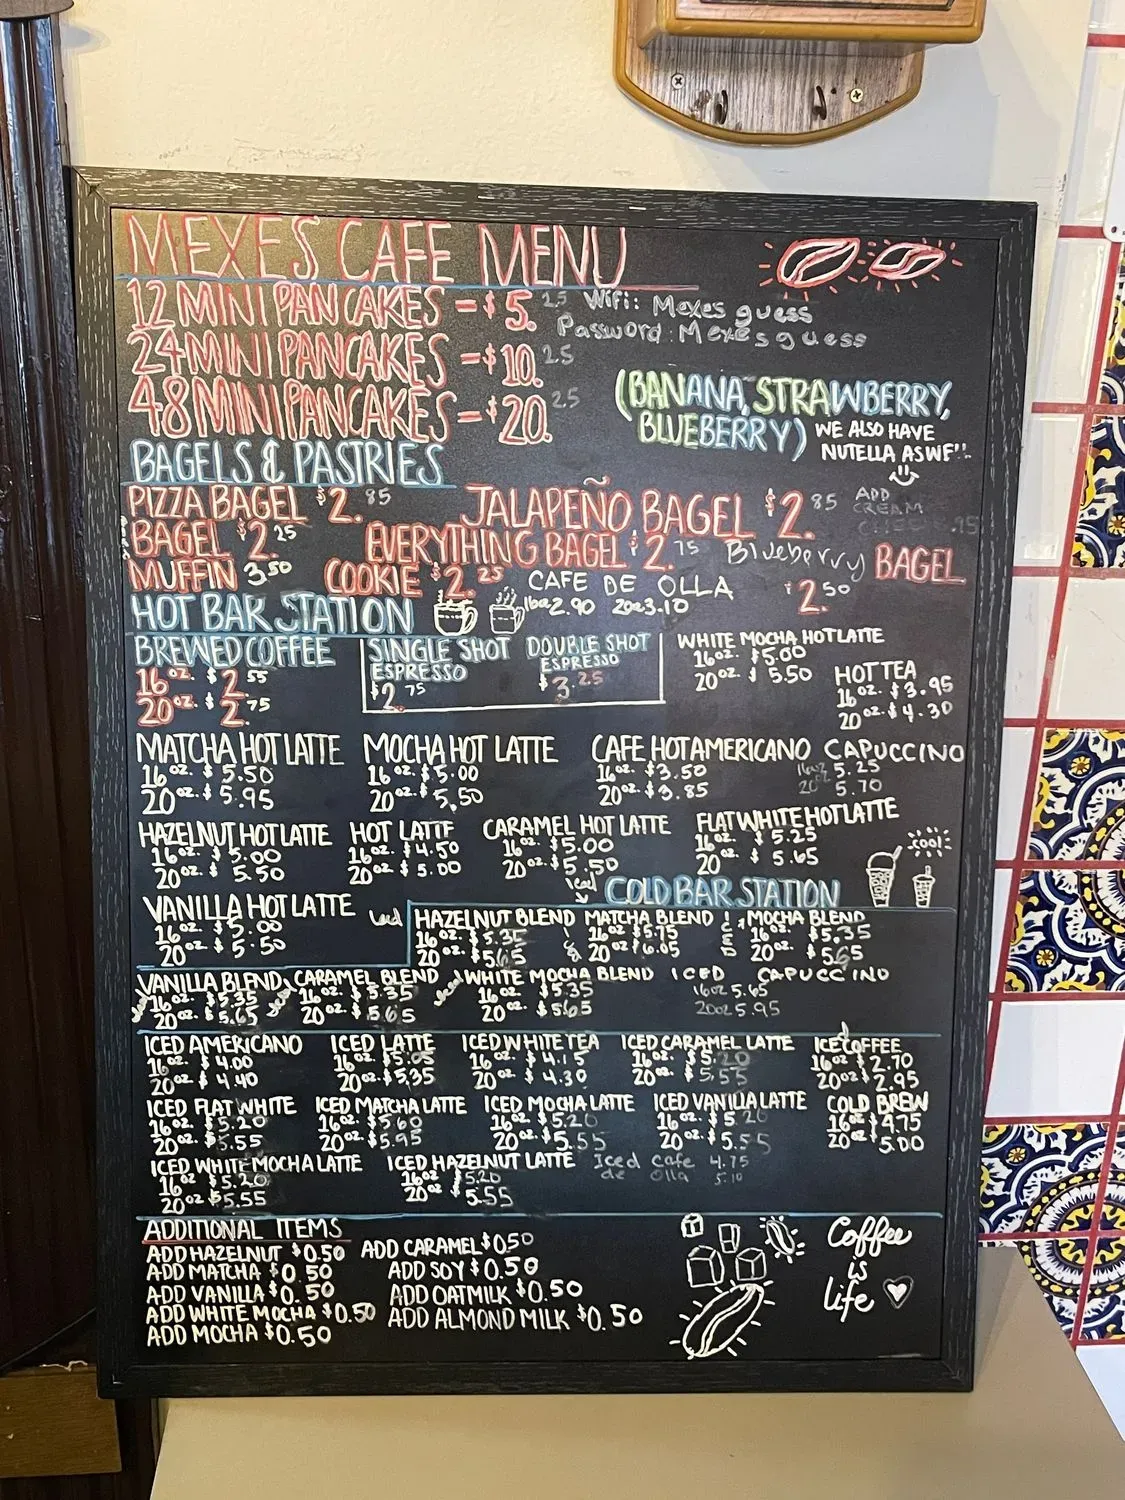 MEXES CAFE MENU
12 MINI PANCAKES - $5.25
24 MINI PANCAKES - $10.25
48 MINI PANCAKES - $20.25
Wifi: Mexes guess
Password: Mexes guess
(BANANA, STRAWBERRY,
BLUEBERRY) WE ALSO HAVE
NUTELLA ASWF!!
BAGELS & PASTRIES
PIZZA BAGEL $2.85 JALAPEÑO BAGEL $2.85 ADD
CREAM
.95
BAGEL $2.25 EVERYTHING BAGEL $2.75 Blueberry BAGEL
$2.50
MUFFIN 3.50 COOKIE $2.25 CAFE DE OLLA
16oz 2.90 20oz 3.10
HOT BAR STATION
BREWED COFFEE
16oz. $2.55
20oz. $2.75
SINGLE SHOT
ESPRESSO
$2.75
DOUBLE SHOT
ESPRESSO
$3.25
WHITE MOCHA HOT LATTE
16oz. $5.00
20oz. $5.50
HOT TEA
16oz. $3.95
20oz. $4.30
MATCHA HOT LATTE
16oz. $5.50
20oz. $5.95
MOCHA HOT LATTE
16oz. $5.00
20oz. $5.50
CAFE HOT AMERICANO
16oz. $3.50
20oz. $3.85
CAPUCCINO
16oz 5.25
20oz 5.70
HAZELNUT HOT LATTE
16oz. $5.00
20oz. $5.50
HOT LATTE
16oz. $4.50
20oz. $5.00
CARAMEL HOT LATTE
16oz. $5.00
20oz. $5.50
FLAT WHITE HOT LATTE
16oz. $5.25
20oz. $5.65
COOL
VANILLA HOT LATTE
16oz. $5.00
20oz. $5.50
Iced
COLD BAR STATION
Iced
HAZELNUT BLEND
16oz. $5.35
20oz. $5.65
MATCHA BLEND
16oz. $5.75
20oz. $6.05
ICED
MOCHA BLEND
16oz. $5.35
20oz. $5.65
VANILLA BLEND
16oz. $5.35
20oz. $5.65
CARAMEL BLEND
16oz. $5.35
20oz. $5.65
WHITE MOCHA BLEND
16oz. $5.35
20oz. $5.65
ICED CAPUCCINO
16oz 5.65
20oz 5.95
ICED AMERICANO
16oz. $4.00
20oz. $4.40
ICED LATTE
16oz. $5.05
20oz. $5.35
ICED WHITE TEA
16oz. $4.15
20oz. $4.30
ICED CARAMEL LATTE
16oz. $5.20
20oz. $5.55
ICE COFFEE
16oz $2.70
20oz $2.95
ICED FLAT WHITE
16oz. $5.20
20oz. $5.55
ICED MATCHA LATTE
16oz. $5.60
20oz. $5.95
ICED MOCHA LATTE
16oz. $5.20
20oz. $5.55
ICED VANILLA LATTE
16oz. $5.20
20oz. $5.55
COLD BREW
16oz $4.75
20oz $5.00
ICED WHITE MOCHA LATTE
16oz $5.20
20oz $5.55
ICED HAZELNUT LATTE
16oz $5.20
20oz $5.55
Iced cafe 4.75
de olla 5.10
ADDITIONAL ITEMS
ADD HAZELNUT $0.50
ADD MATCHA $0.50
ADD VANILLA $0.50
ADD WHITE MOCHA $0.50
ADD MOCHA $0.50
ADD CARAMEL $0.50
ADD SOY $0.50
ADD OATMILK $0.50
ADD ALMOND MILK $0.50
Coffee
is
life